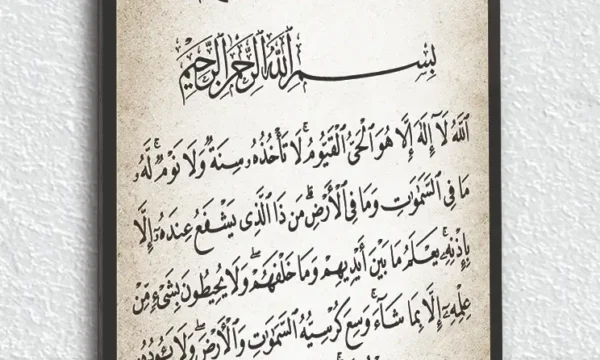 بِسْمِ ٱللَّهِ ٱلرَّحْمَٰنِ ٱلرَّحِيمِ
ٱللَّهُ لَآ إِلَٰهَ إِلَّا هُوَ ٱلْحَىُّ ٱلْقَيُّومُ ۚ لَا تَأْخُذُهُۥ سِنَةٌ وَلَا نَوْمٌ ۚ لَّهُۥ
مَا فِى ٱلسَّمَٰوَٰتِ وَمَا فِى ٱلْأَرْضِ ۗ مَن ذَا ٱلَّذِى يَشْفَعُ عِندَهُۥٓ إِلَّا
بِإِذْنِهِۦ ۚ يَعْلَمُ مَا بَيْنَ أَيْدِيهِمْ وَمَا خَلْفَهُمْ ۖ وَلَا يُحِيطُونَ بِشَىْءٍ مِّنْ
عِلْمِهِۦٓ إِلَّا بِمَا شَآءَ ۚ وَسِعَ كُرْسِيُّهُ ٱلسَّمَٰوَٰتِ وَٱلْأَرْضَ ۖ وَلَا يَـُٔودُهُۥ